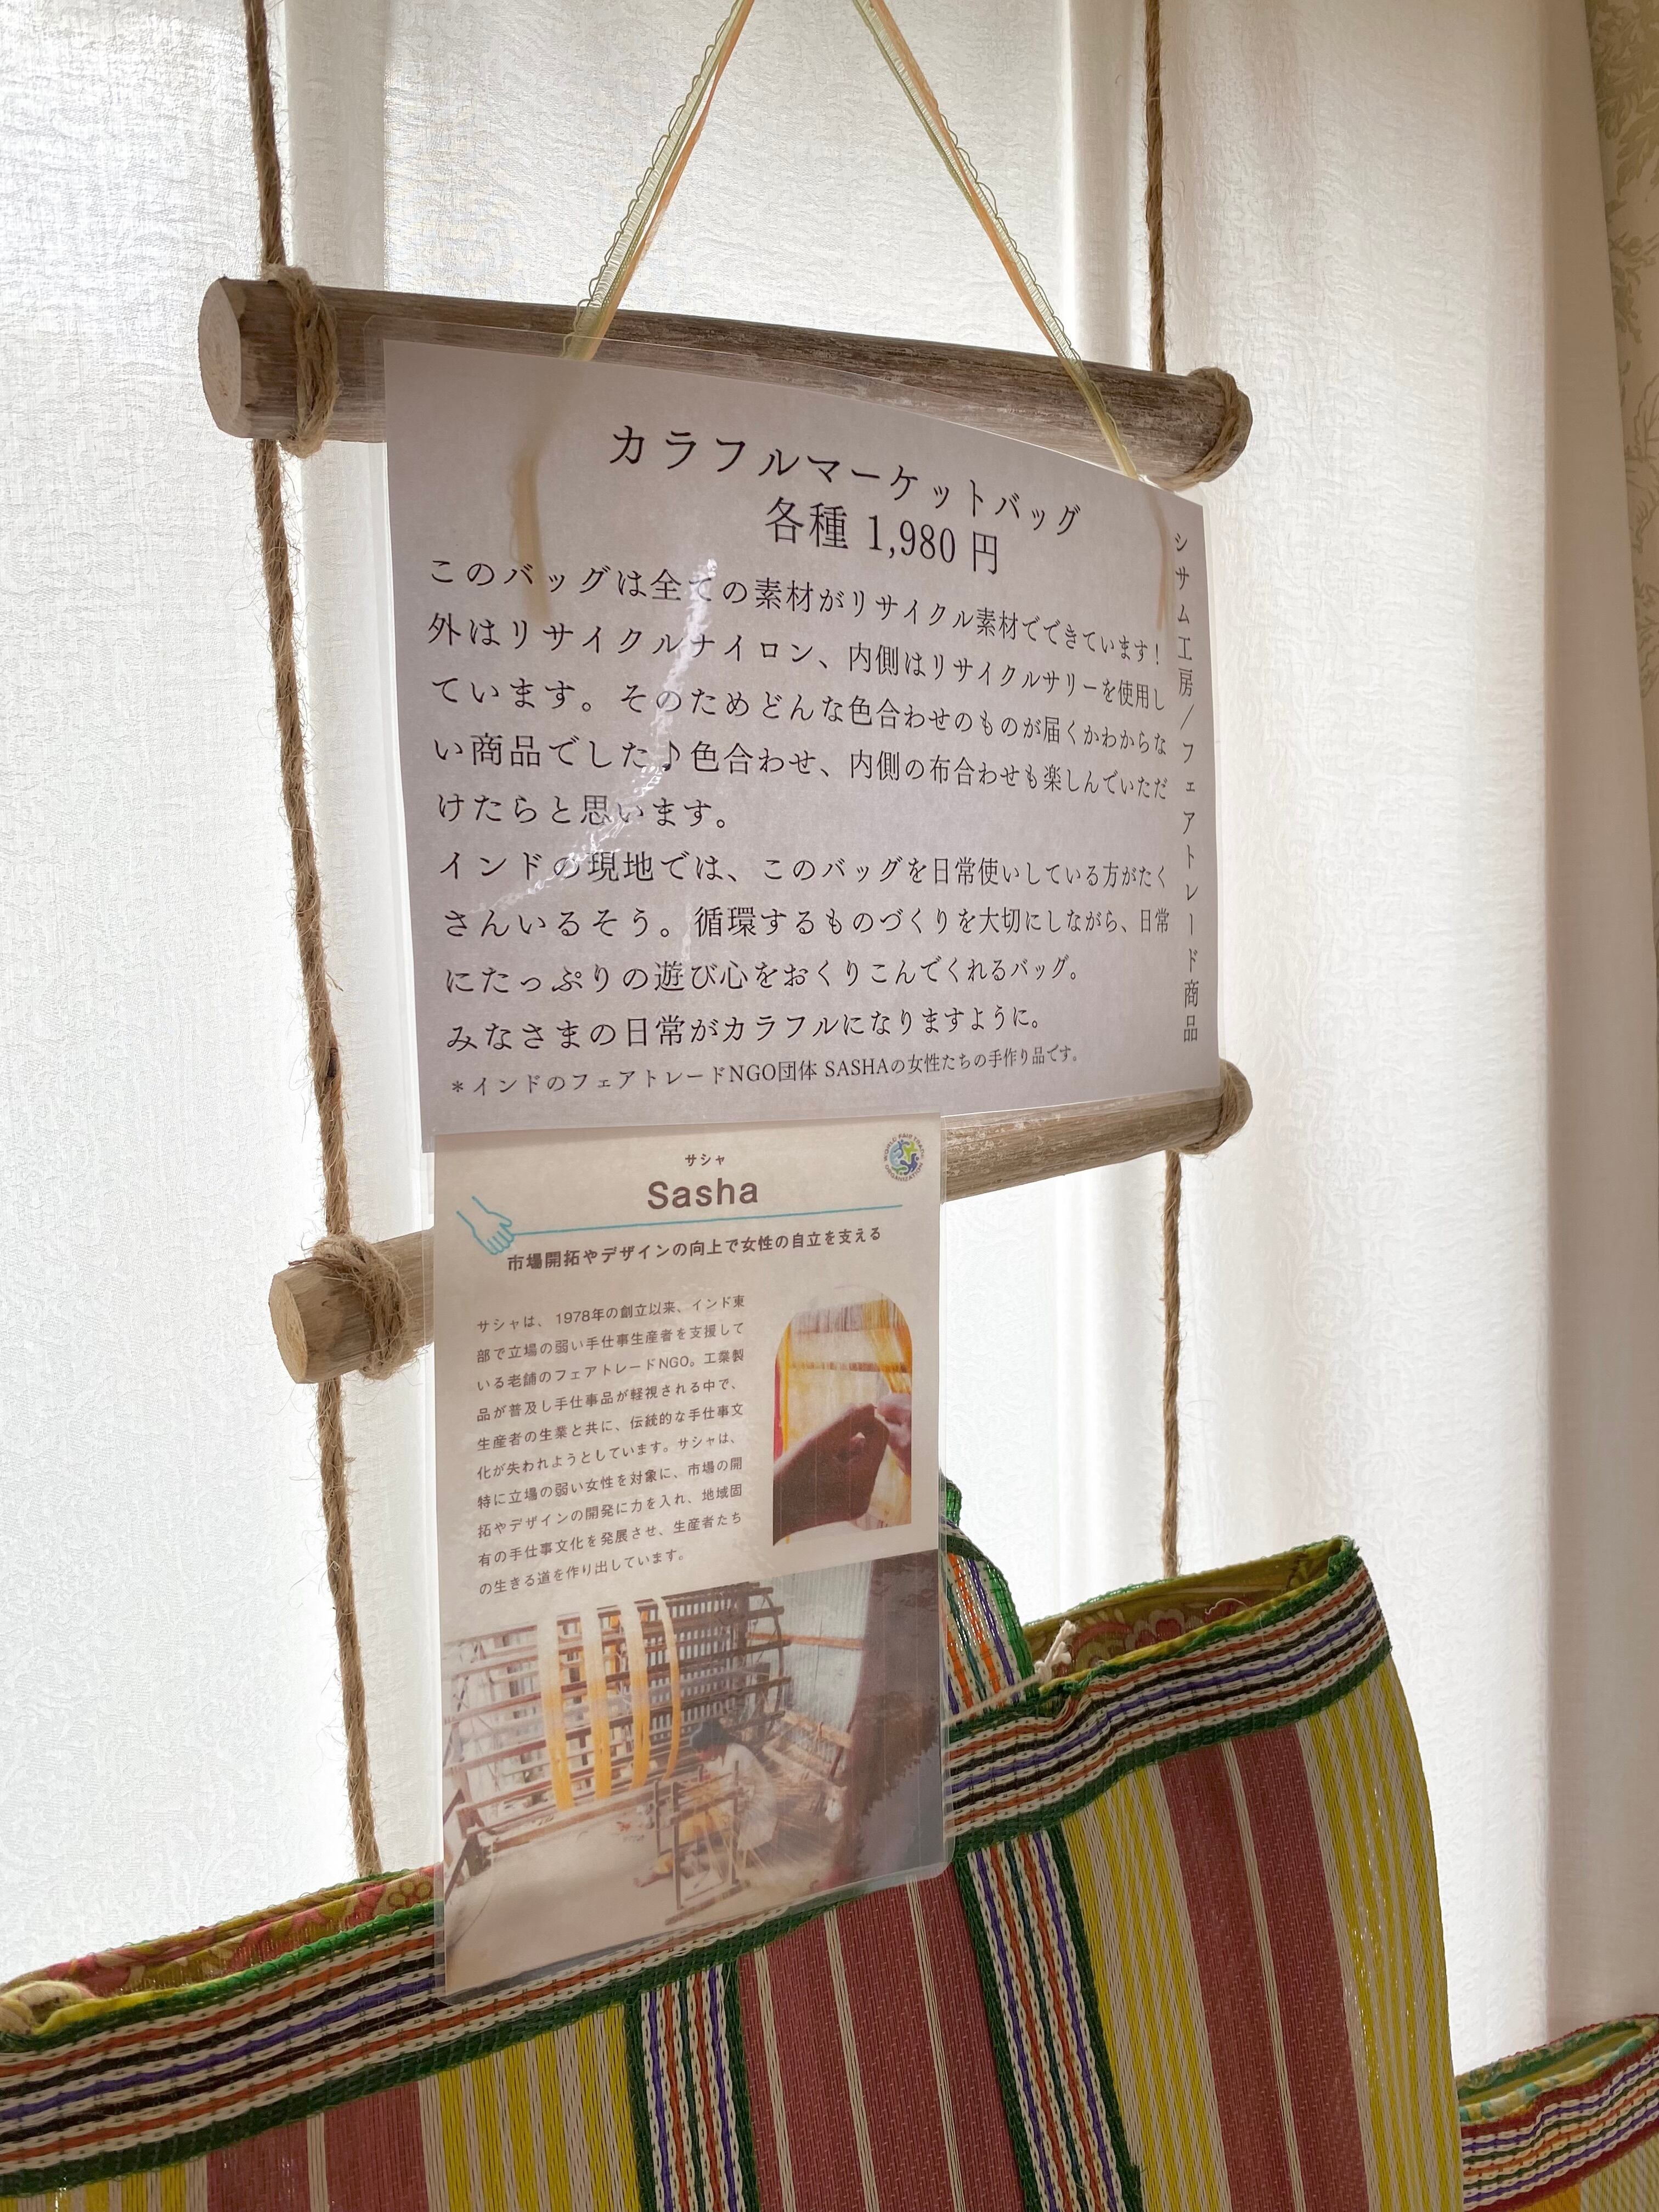 カラフルマーケットバッグ
各種 1,980 円
このバッグは全ての素材がリサイクル素材でできています!
外はリサイクルナイロン、内側はリサイクルサリーを使用し
ています。そのためどんな色合わせのものが届くかわからな
い商品でした♪色合わせ、内側の布合わせも楽しんでいただ
けたらと思います。
インドの現地では、このバッグを日常使いしている方がたく
さんいるそう。循環するものづくりを大切にしながら、日常
にたっぷりの遊び心をおくりこんでくれるバッグ。
みなさまの日常がカラフルになりますように。
*インドのフェアトレードNGO団体 SASHAの女性たちの手作り品です。
シサム工房/フェアトレード商品
サシャ
Sasha
WORLD FAIR TRADE ORGANIZATION
市場開拓やデザインの向上で女性の自立を支える
サシャは、1978年の創立以来、インド東
部で立場の弱い手仕事生産者を支援して
いる老舗のフェアトレードNGO。工業製
品が普及し手仕事品が軽視される中で、
生産者の生業と共に、伝統的な手仕事文
化が失われようとしています。サシャは、
特に立場の弱い女性を対象に、市場の開
拓やデザインの開発に力を入れ、地域固
有の手仕事文化を発展させ、生産者たち
の生きる道を作り出しています。